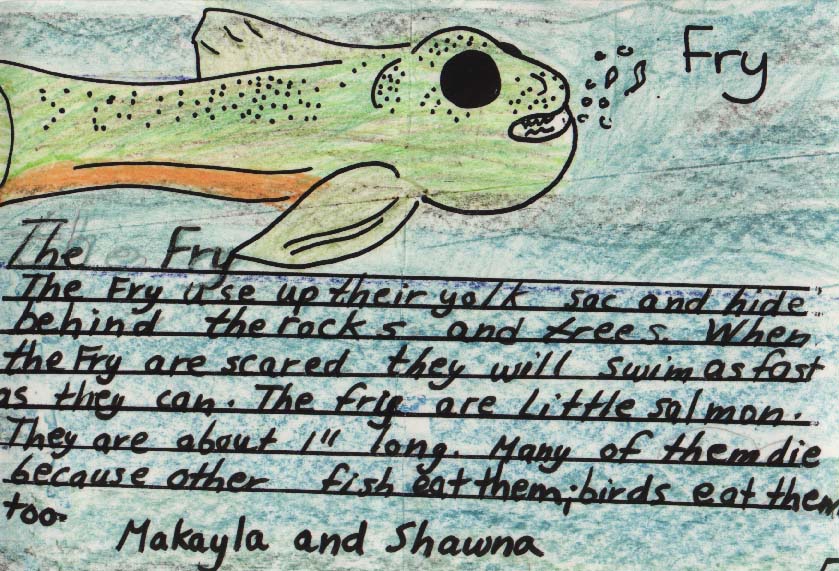 Fry
The Fry
The Fry use up their yolk sac and hide
behind the rocks and trees. When
the Fry are scared they will swim as fast
as they can. The frig are little salmon.
They are about 1" long. Many of them die
because other fish eat them; birds eat them
too.
Makayla and Shawna